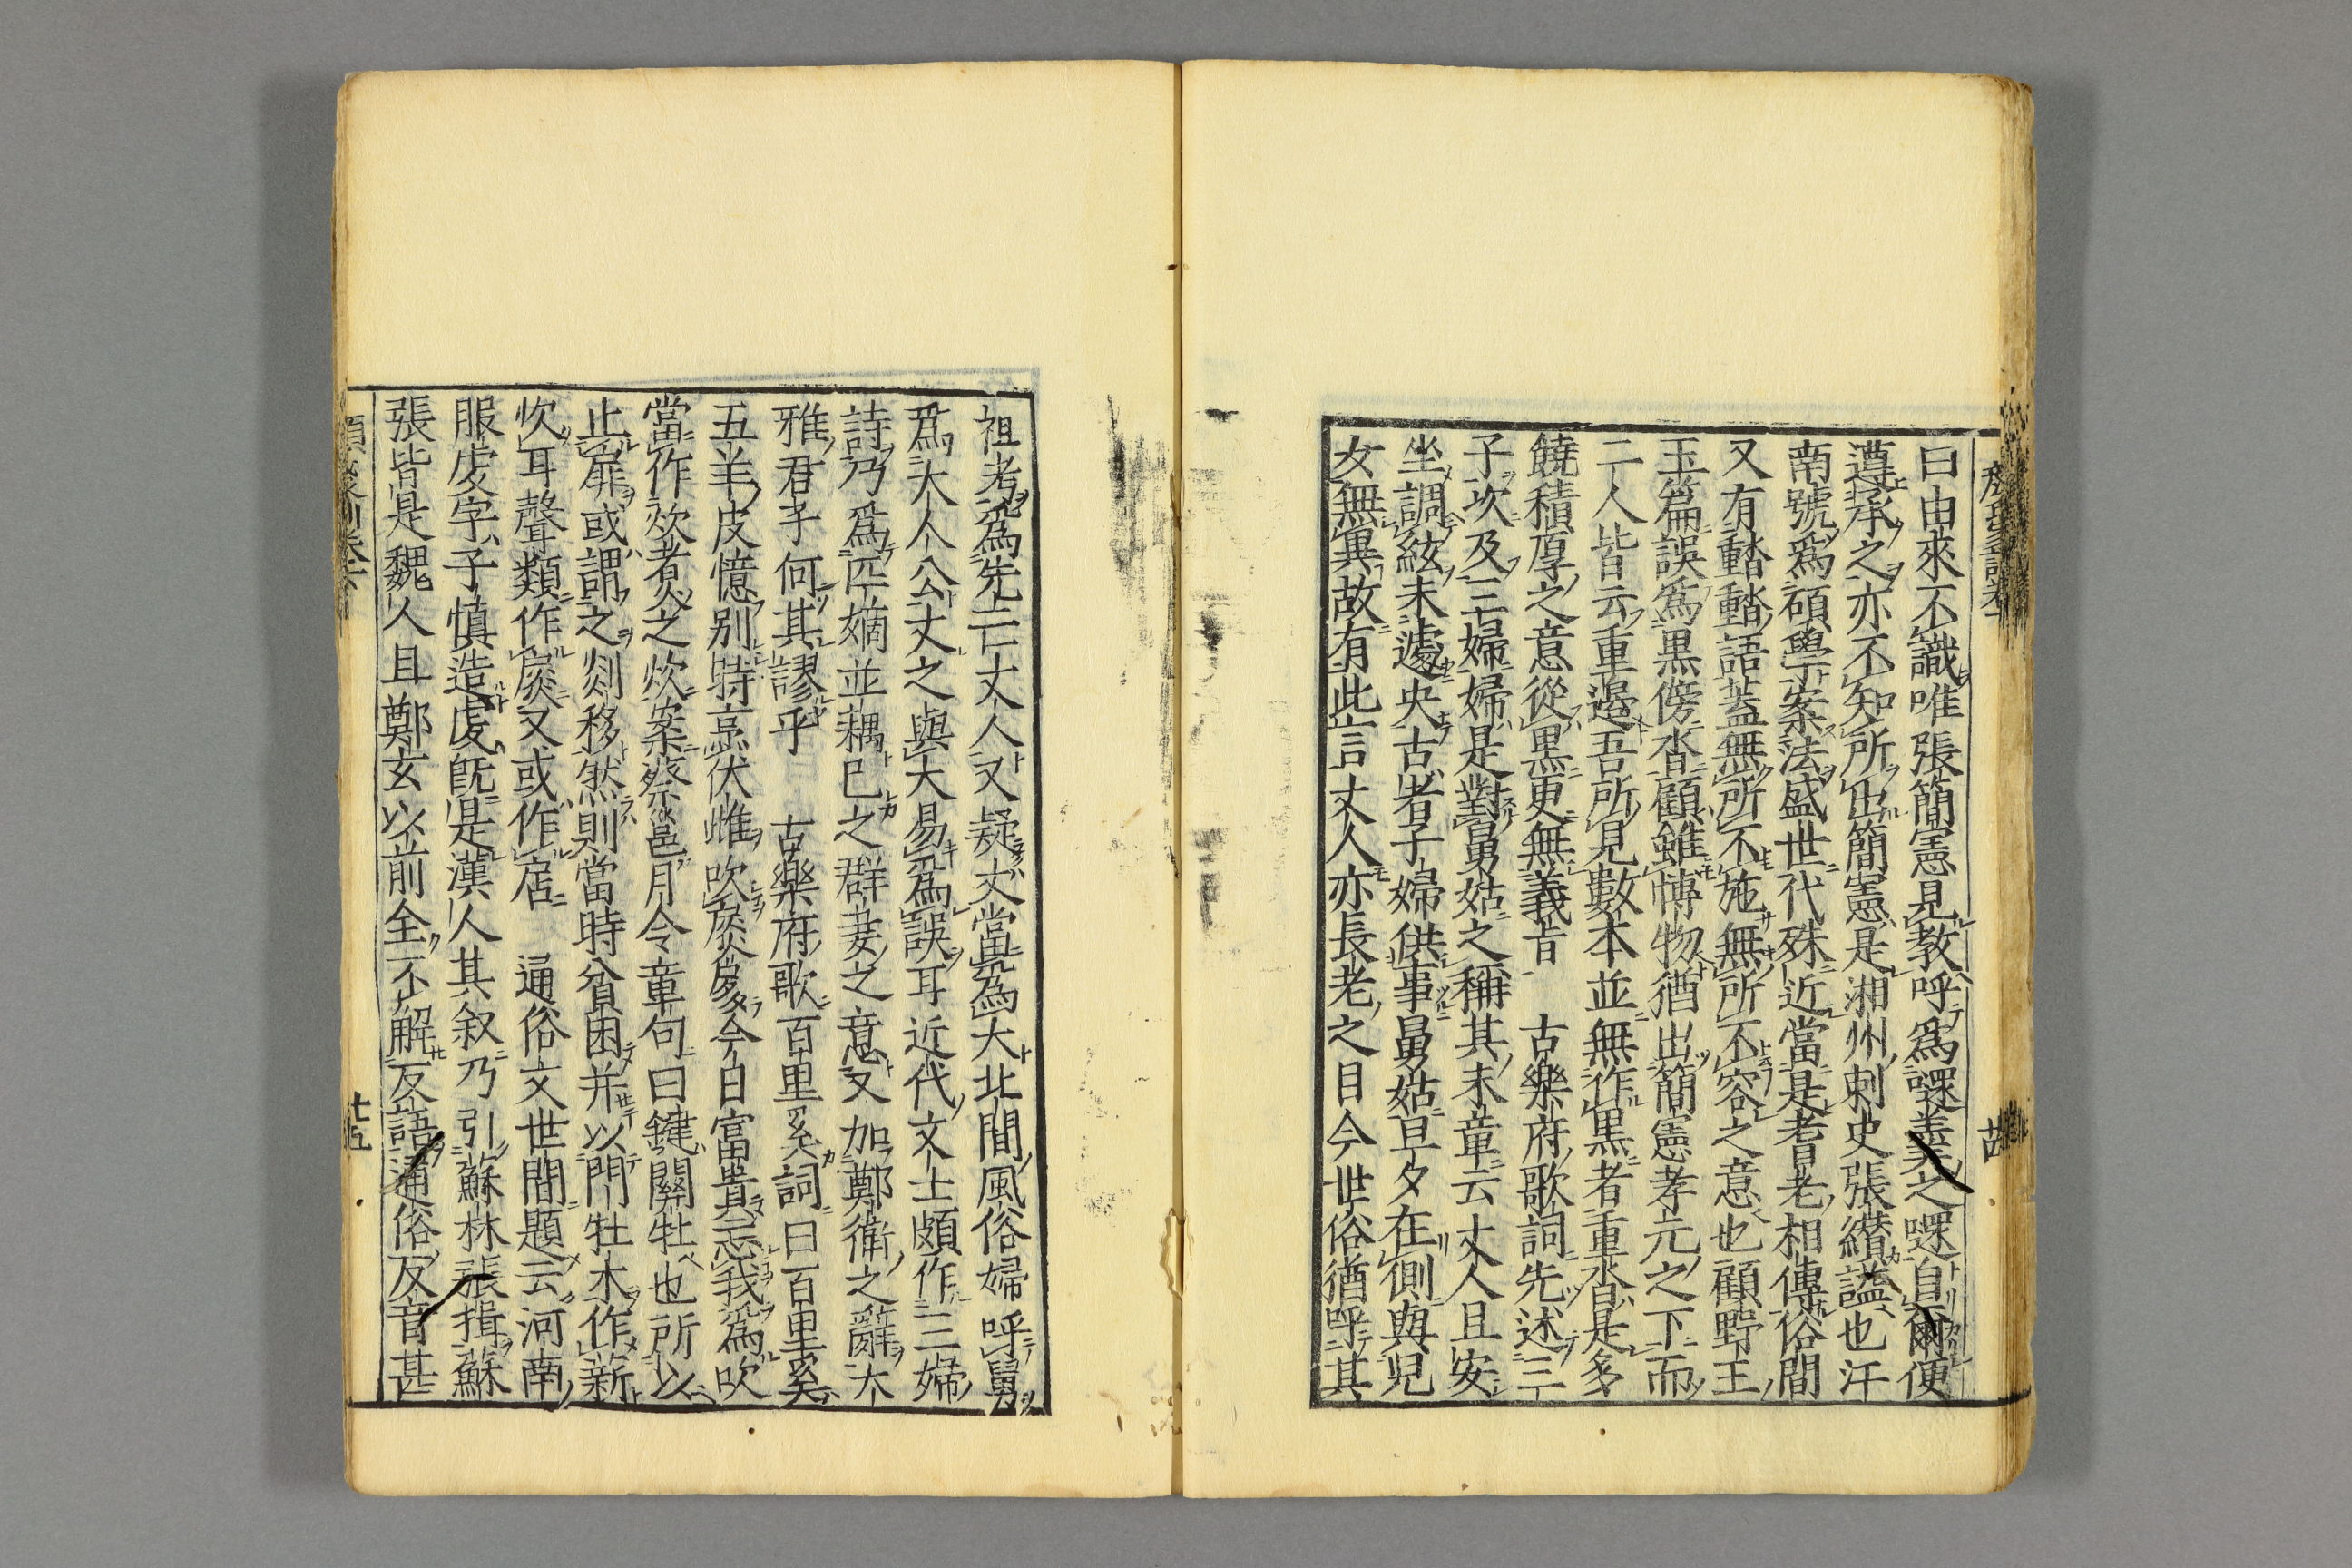 曰由來不識唯張簡憲見教呼爲㗱羹之㗱自爾便
遵承之亦不知所出簡憲是湘州刺史張纘謚也江
南號爲碩學案法盛世代殊近當是耆老相傳俗間
又有䵬䵬語蓋無所不施無所不容之意也顧野王
玉篇誤爲黒傍沓顧雖博物猶出簡憲孝元之下而
二人皆云重邊吾所見數本並無作黒者重沓是多
饒積厚之意從黒更無義旨　古樂府歌詞先述三
子次及三婦婦是對舅姑之稱其末章云丈人且安
坐調絃未遽央古者子婦供事舅姑旦夕在側與兒
女無異故有此言丈人亦長老之目今世俗猶呼其
祖考爲先亡丈人又疑丈當爲大北間風俗婦呼舅
爲大人公丈之與大易爲誤耳近代文士頗作三婦
詩乃爲匹嫡並耦己之群妻之意又加鄭衛之辭大
雅君子何其謬乎　古樂府歌百里奚詞曰百里奚
五羊皮憶別時烹伏雌吹扊扅今日富貴忘我爲吹
當作炊煮之炊案蔡邕月令章句曰鍵關牡也所以
止扉或謂之剡移然則當時貧困并以門牡木作薪
炊耳聲類作扊又或作扂　通俗文世間題云河南
服虔字子愼造虔既是漢人其叙乃引蘇林張揖蘇
張皆是魏人且鄭玄以前全不解反語通俗反音甚
顔氏家訓卷六
廿五